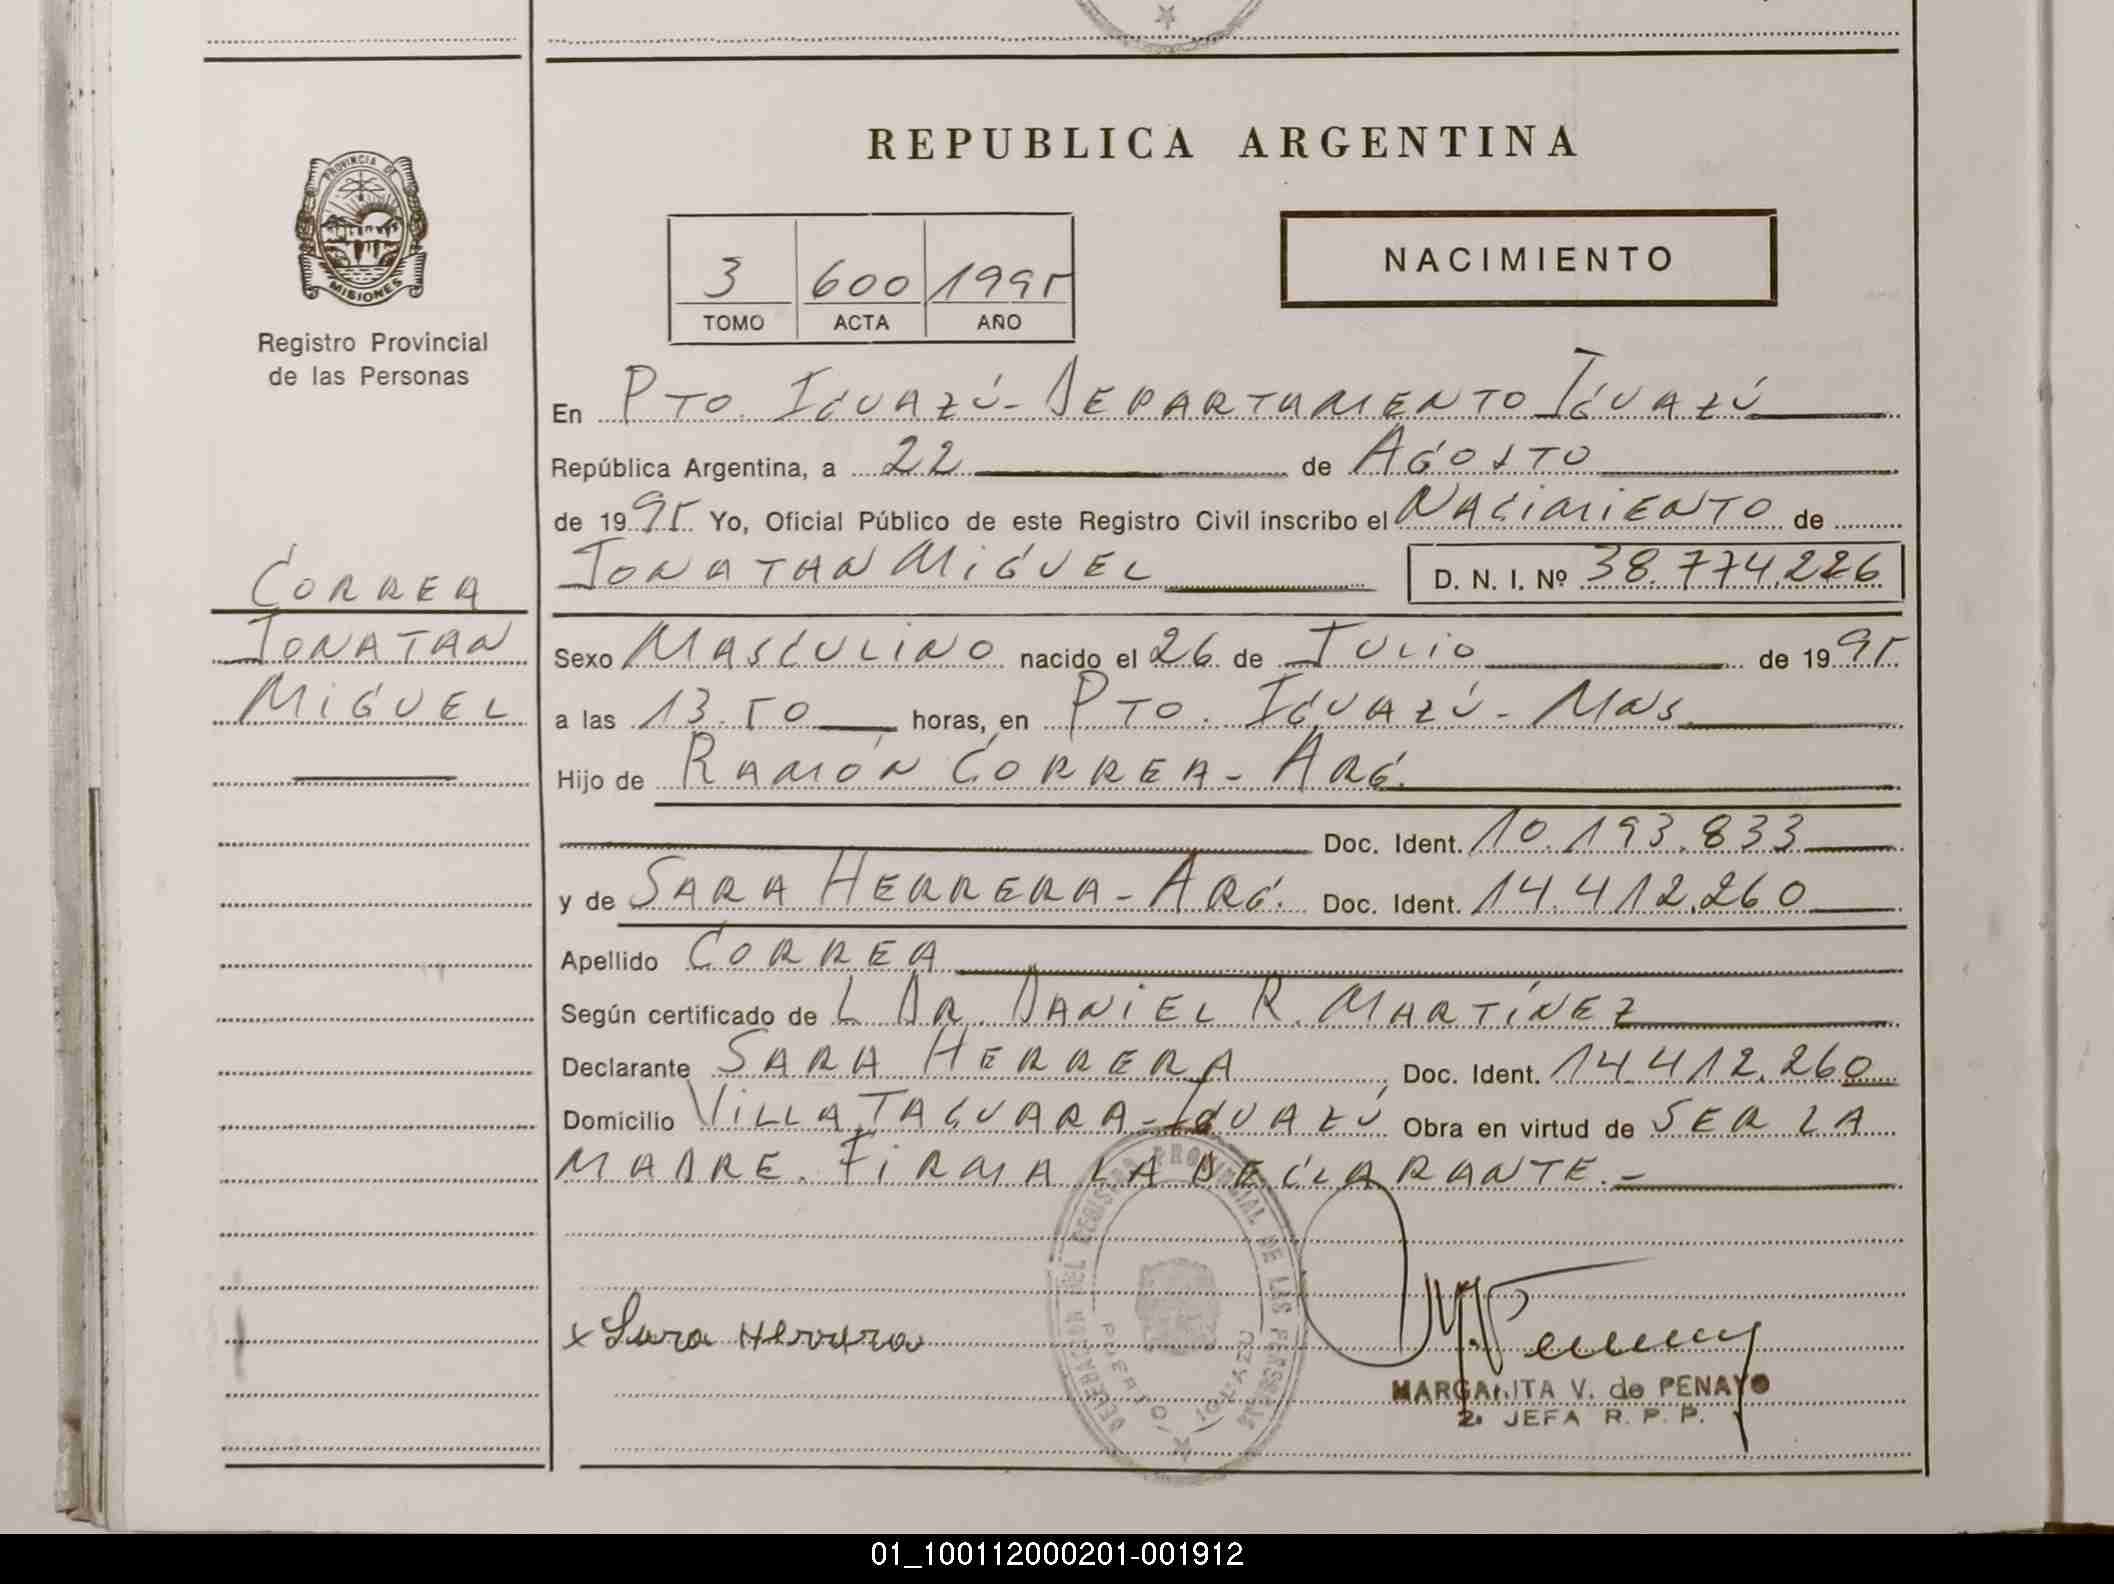 REPUBLICA ARGENTINA
PROVINCIA DE
MISIONES
Registro Provincial
de las Personas
NACIMIENTO
3 600 1995
TOMO ACTA AÑO
En PTO. IGUAZÚ - DEPARTAMENTO IGUAZÚ
República Argentina, a 22 de AGOSTO
de 1995 Yo, Oficial Público de este Registro Civil inscribo el NACIMIENTO de
JONATAN MIGUEL D. N. I. Nº 38.774.226
CORREA
JONATAN
MIGUEL
Sexo MASCULINO nacido el 26 de JULIO de 1995
a las 13.50 horas, en PTO. IGUAZÚ - MNS
Hijo de RAMÓN CORREA - ARG.
Doc. Ident. 10.193.833
y de SARA HERRERA - ARG. Doc. Ident. 14.412.260
Apellido CORREA
Según certificado de L DR. DANIEL R. MARTÍNEZ
Declarante SARA HERRERA Doc. Ident. 14.412.260
Domicilio VILLA TAGUARA - IGUAZÚ Obra en virtud de SER LA
MADRE. FIRMA LA DECLARANTE.-
DELEGACION DEL REGISTRO PROVINCIAL DE LAS PERSONAS
PUERTO IGUAZU
x Sara Herrera
MARGARITA V. de PENAYO
2. JEFA R. P. P.
01_100112000201-001912